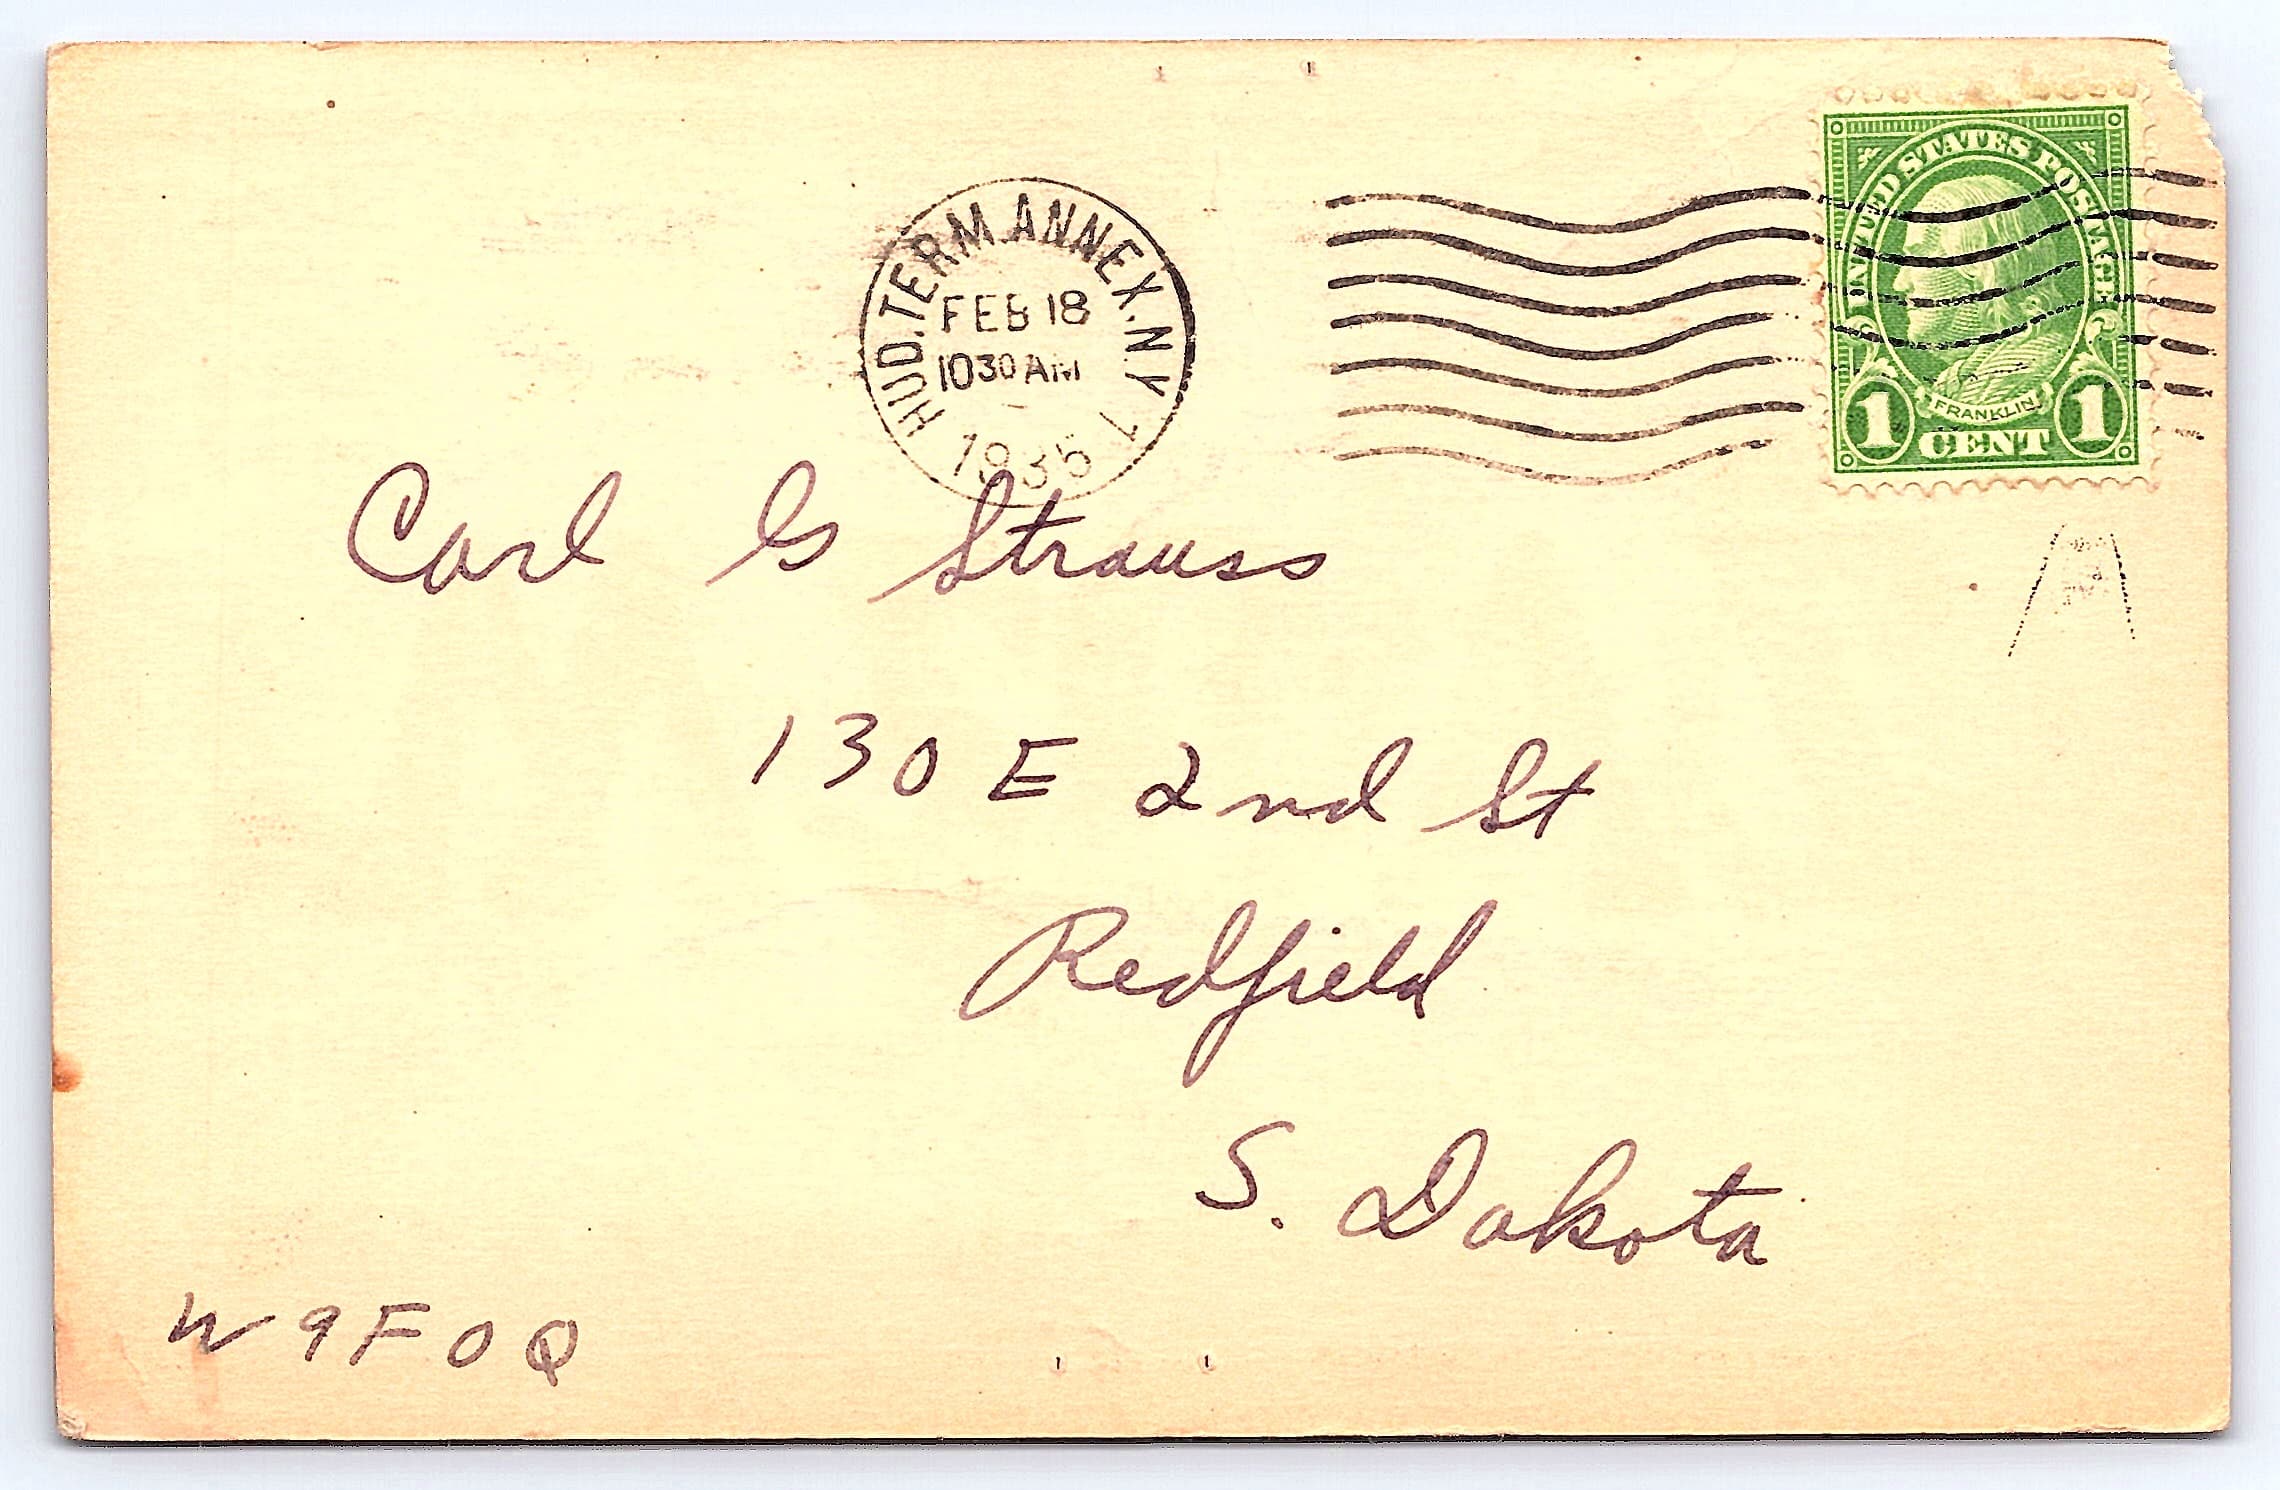 HUD. TERM. ANNEX. N.Y. 1
FEB 18
10 30 AM
1935
UNITED STATES POSTAGE
FRANKLIN
1 CENT 1
Carl G Strauss
130 E 2nd St
Redfield
S. Dakota
W9FOQ